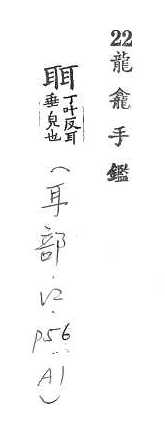 22龍龕手鑑
聑丁叶反耳
垂皃也
(耳部.V2.P56..A1)